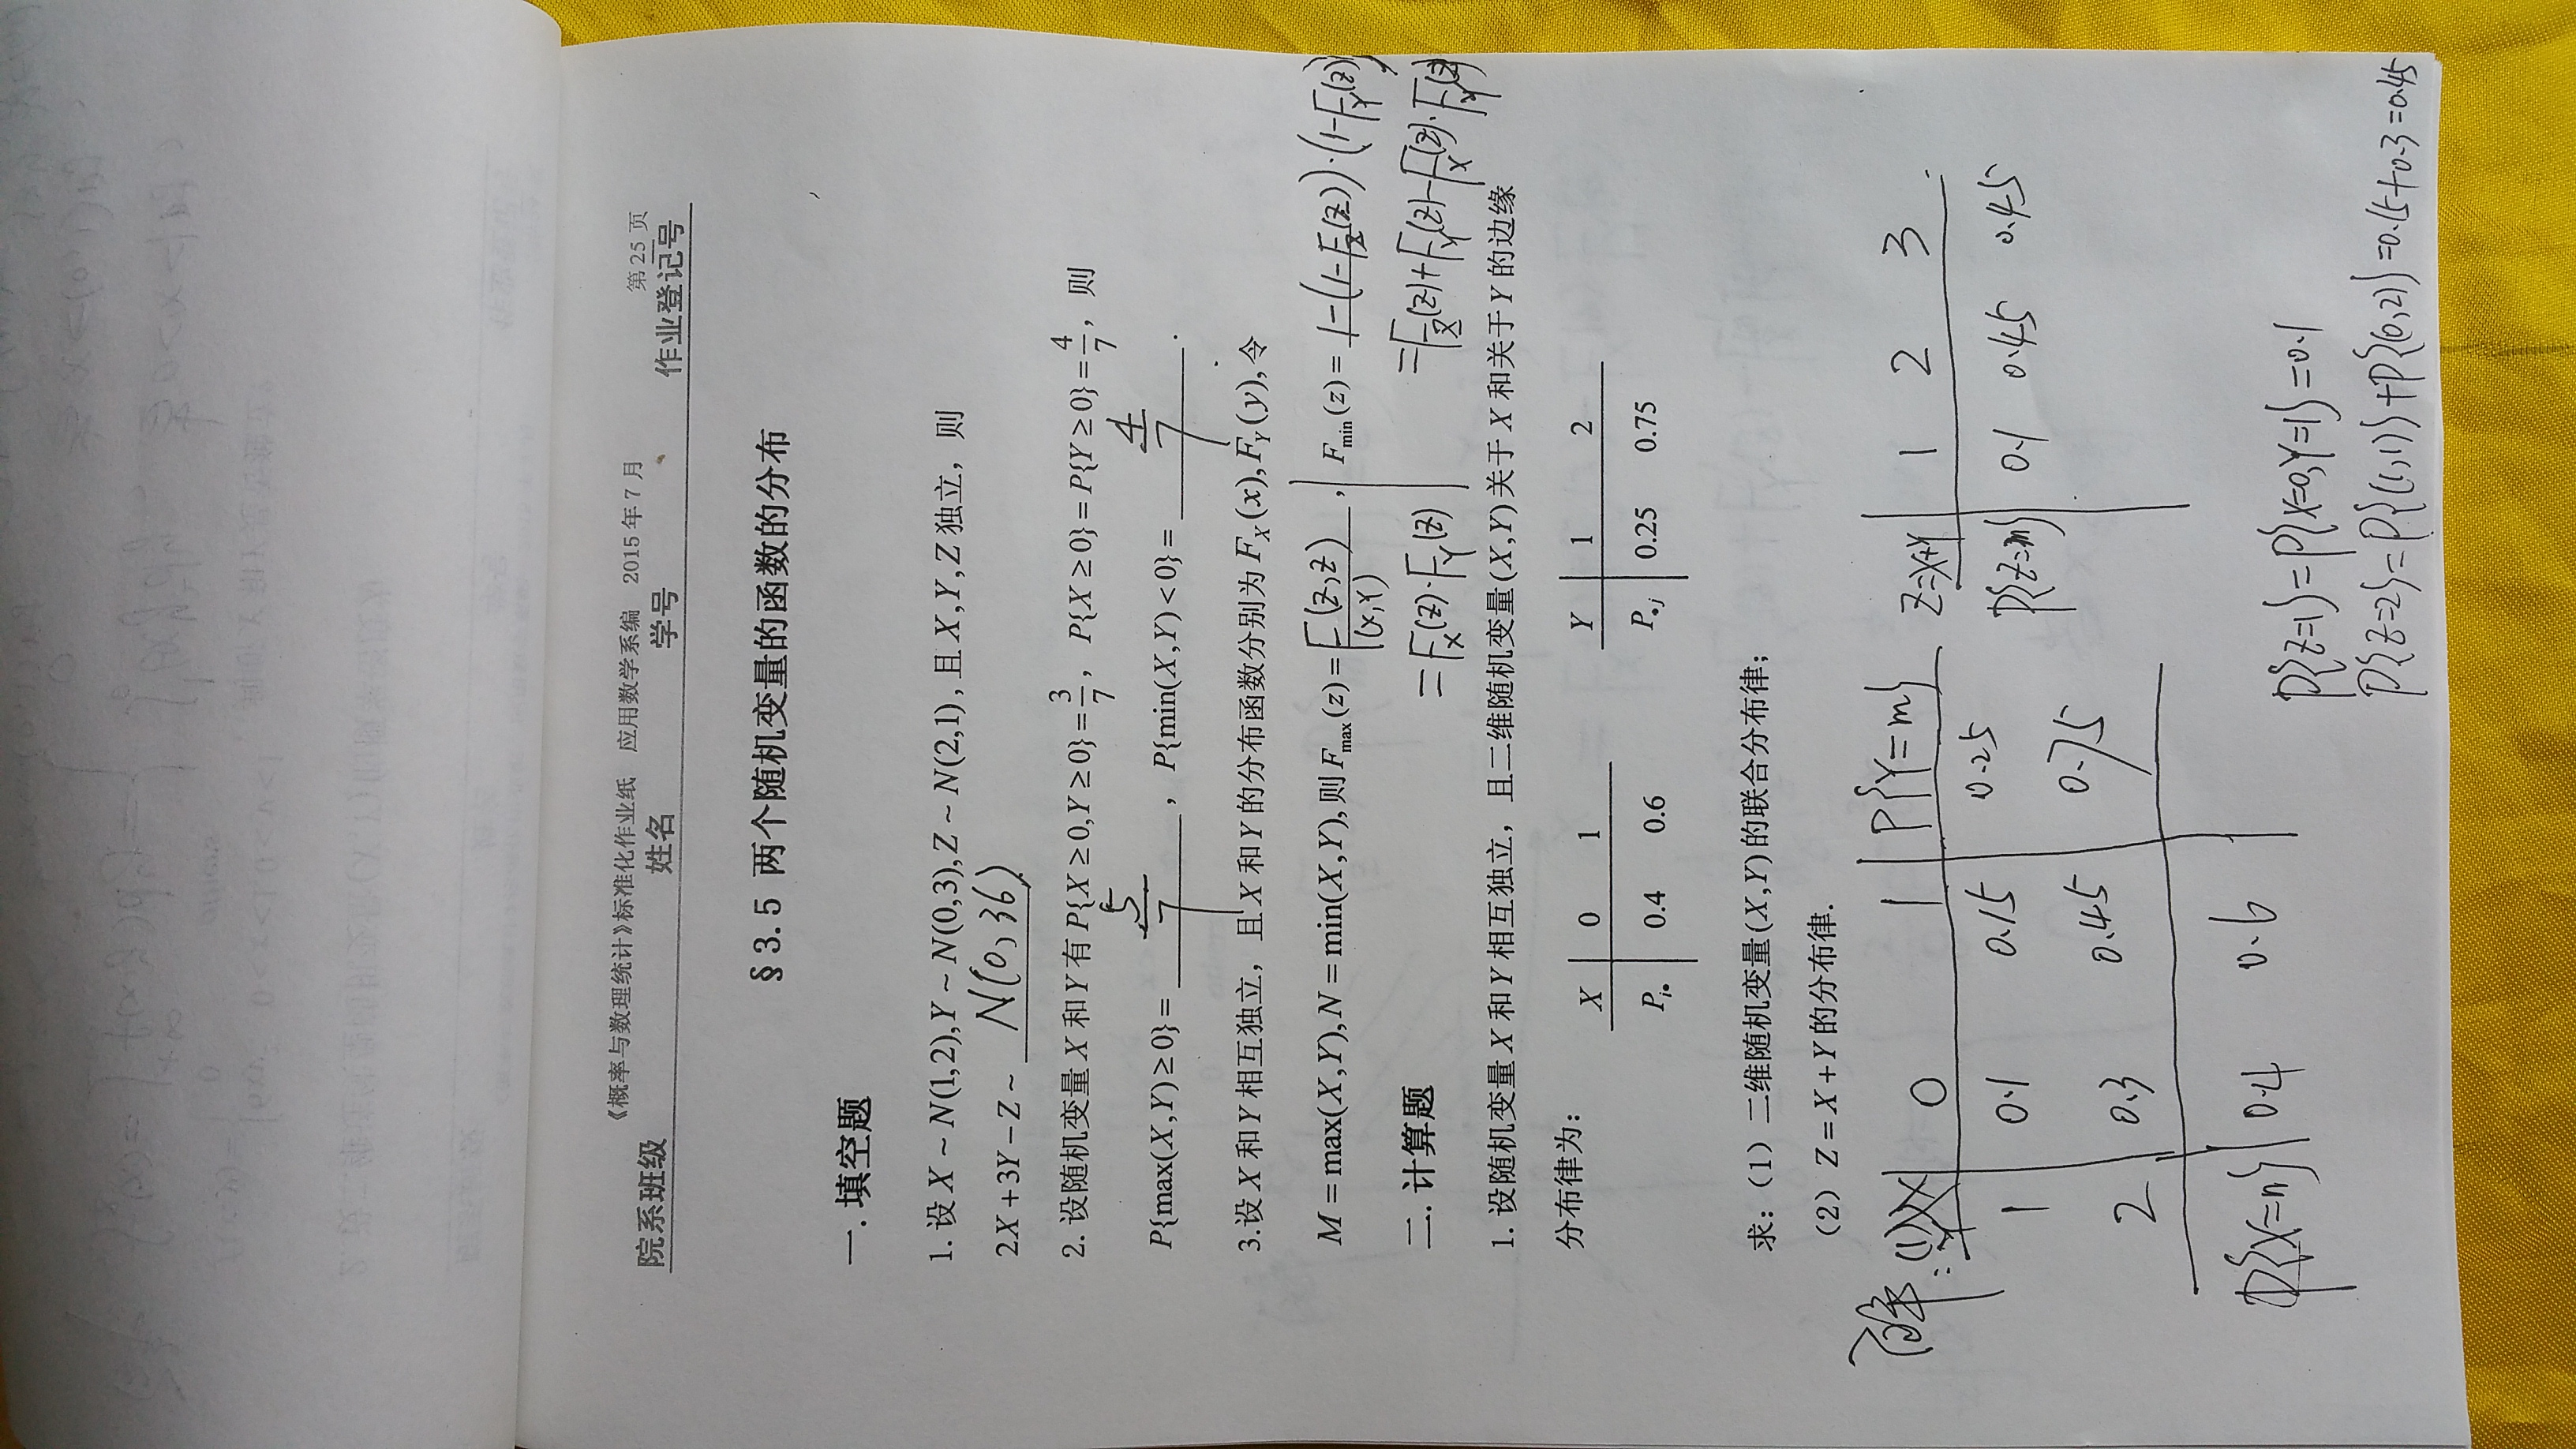 《概率与数理统计》标准化作业纸 应用数学系编 2015年7月 第25页
院系班级 姓名 学号 作业登记号
§3.5 两个随机变量的函数的分布
一. 填空题
1. 设 X ~ N(1,2), Y ~ N(0,3), Z ~ N(2,1), 且 X,Y,Z 独立，则
2X+3Y−Z ~ N(0,36).
2. 设随机变量 X 和 Y 有 P{X≥0,Y≥0}=3/7， P{X≥0}=P{Y≥0}=4/7，则
P{max(X,Y)≥0}= 5/7 ， P{min(X,Y)<0}= 4/7 .
3.设 X 和 Y 相互独立，且 X 和 Y 的分布函数分别为 F_X(x), F_Y(y), 令
M=max(X,Y), N=min(X,Y), 则 F_max(z)= F_(X,Y)(z,z) ， F_min(z)= 1-(1-F_X(z))·(1-F_Y(z))
=F_X(z)·F_Y(z) =F_X(z)+F_Y(z)-F_X(z)·F_Y(z)
二. 计算题
1. 设随机变量 X 和 Y 相互独立，且二维随机变量(X,Y)关于 X 和关于 Y 的边缘
分布律为:
X 0 1 Y 1 2
P_i• 0.4 0.6 P_•j 0.25 0.75
求:（1）二维随机变量(X,Y)的联合分布律;
（2）Z=X+Y的分布律.
解: (1) X Y 0 1 P{Y=m} Z=X+Y 1 2 3
1 0.1 0.15 0.25 P{Z=m} 0.1 0.45 0.45
2 0.3 0.45 0.75
P{X=n} 0.4 0.6
P{Z=1}=P{X=0,Y=1}=0.1
P{Z=2}=P{(1,1)}+P{(0,2)}=0.15+0.3=0.45